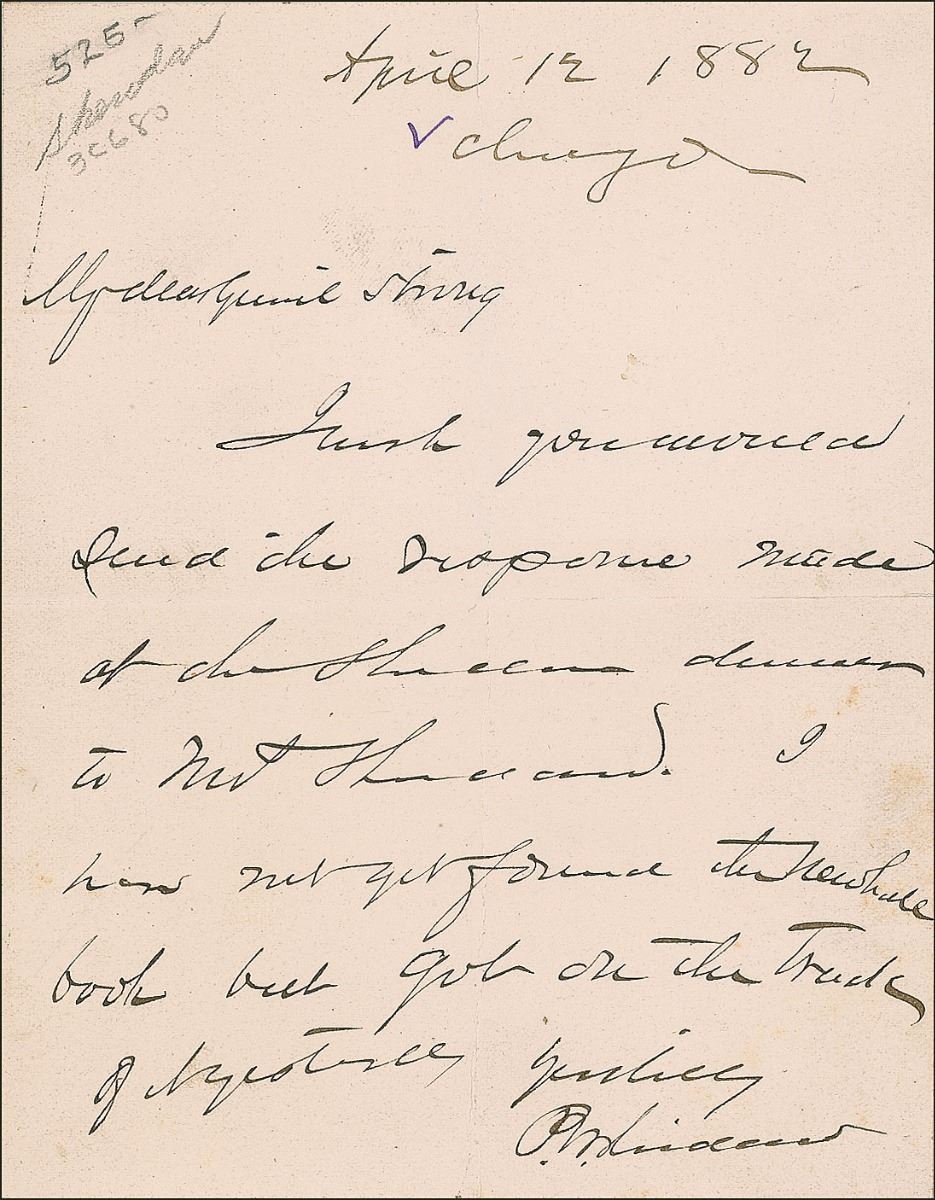 525-
Sheridan
36680
April 12 1882
Chicago
My dear Genrl Strong
I wish you would
send the response made
at the Sherman dinner
to Mrs Sheridan. I
have not yet found the Newhall
book but got on the track
of it yesterday
Yours truly
P. H. Sheridan